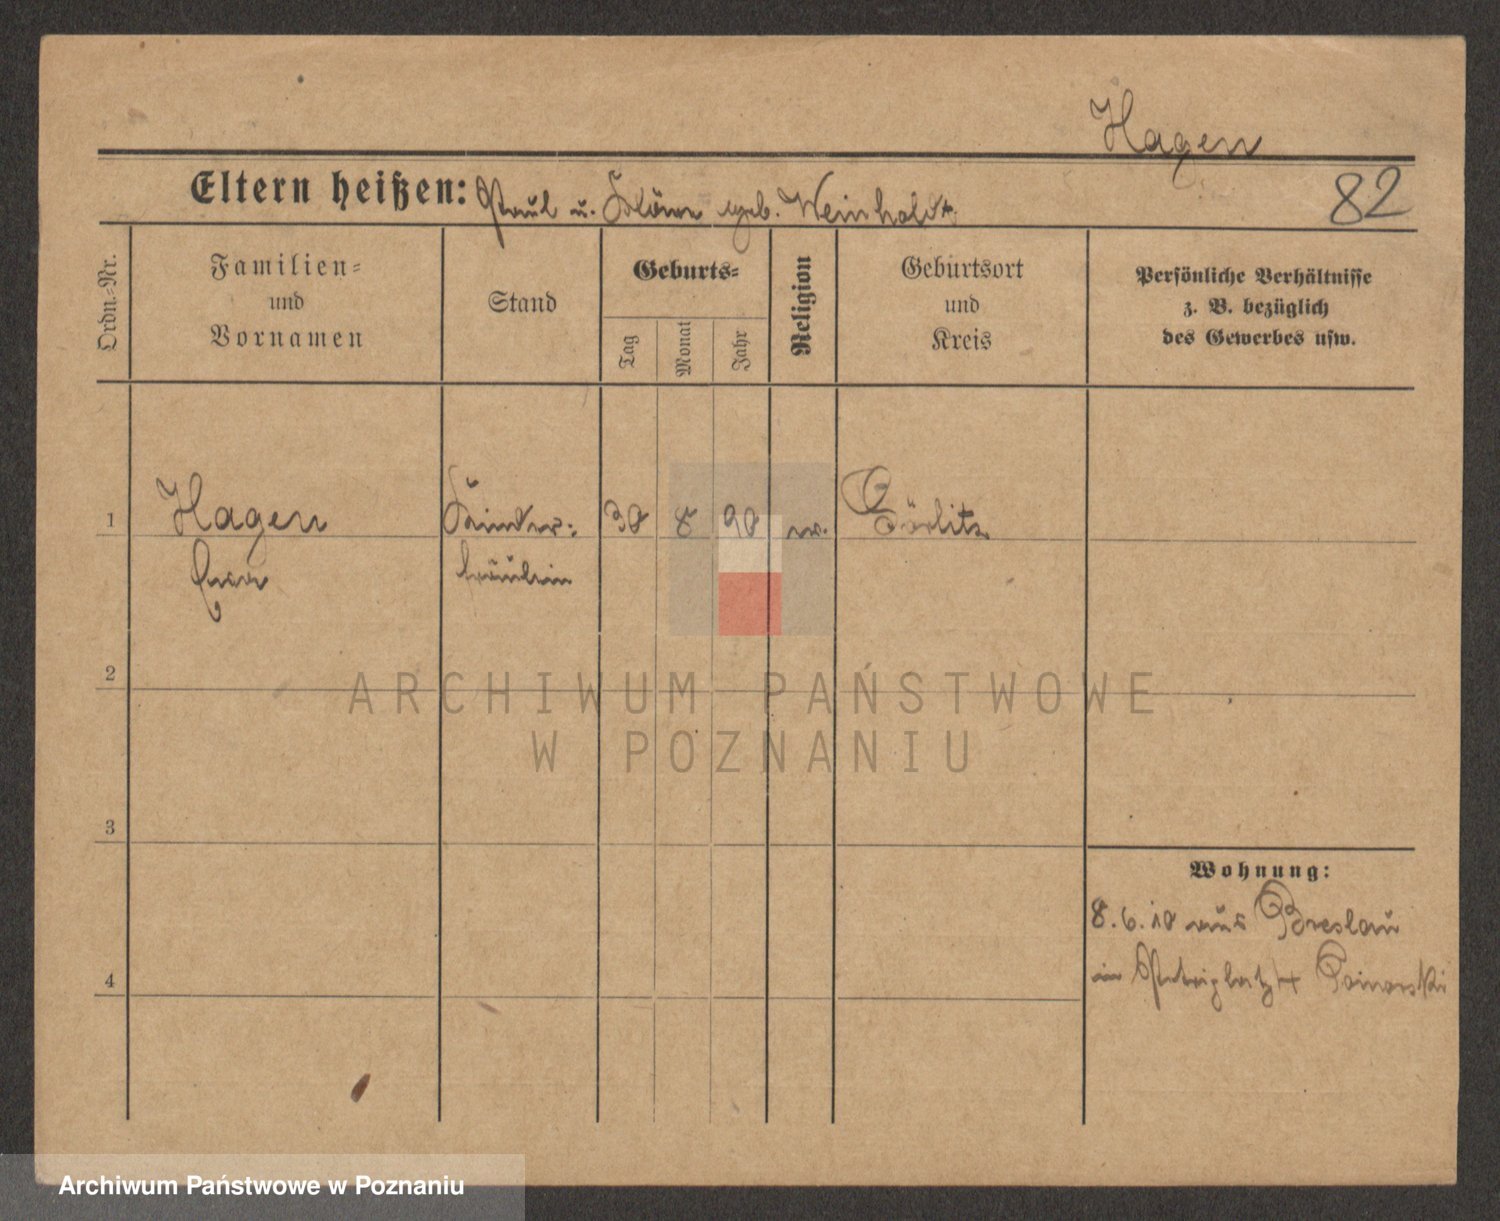 Hagen
Eltern heißen: Paul u. geb. Weinholdt
82
Ordn.-Nr.
Familien-
und
Vornamen
Stand
Geburts-
Tag
Monat
Jahr
Religion
Geburtsort
und
Kreis
Persönliche Verhältnisse
z. B. bezüglich
des Gewerbes usw.
1
Hagen
Kinder-
30
8
90
Görlitz
fräulein
2
ARCHIWUM PAŃSTWOWE
W POZNANIU
3
Wohnung:
8.6.10 aus Breslau
in Petriplatz 4
4
Archiwum Państwowe w Poznaniu